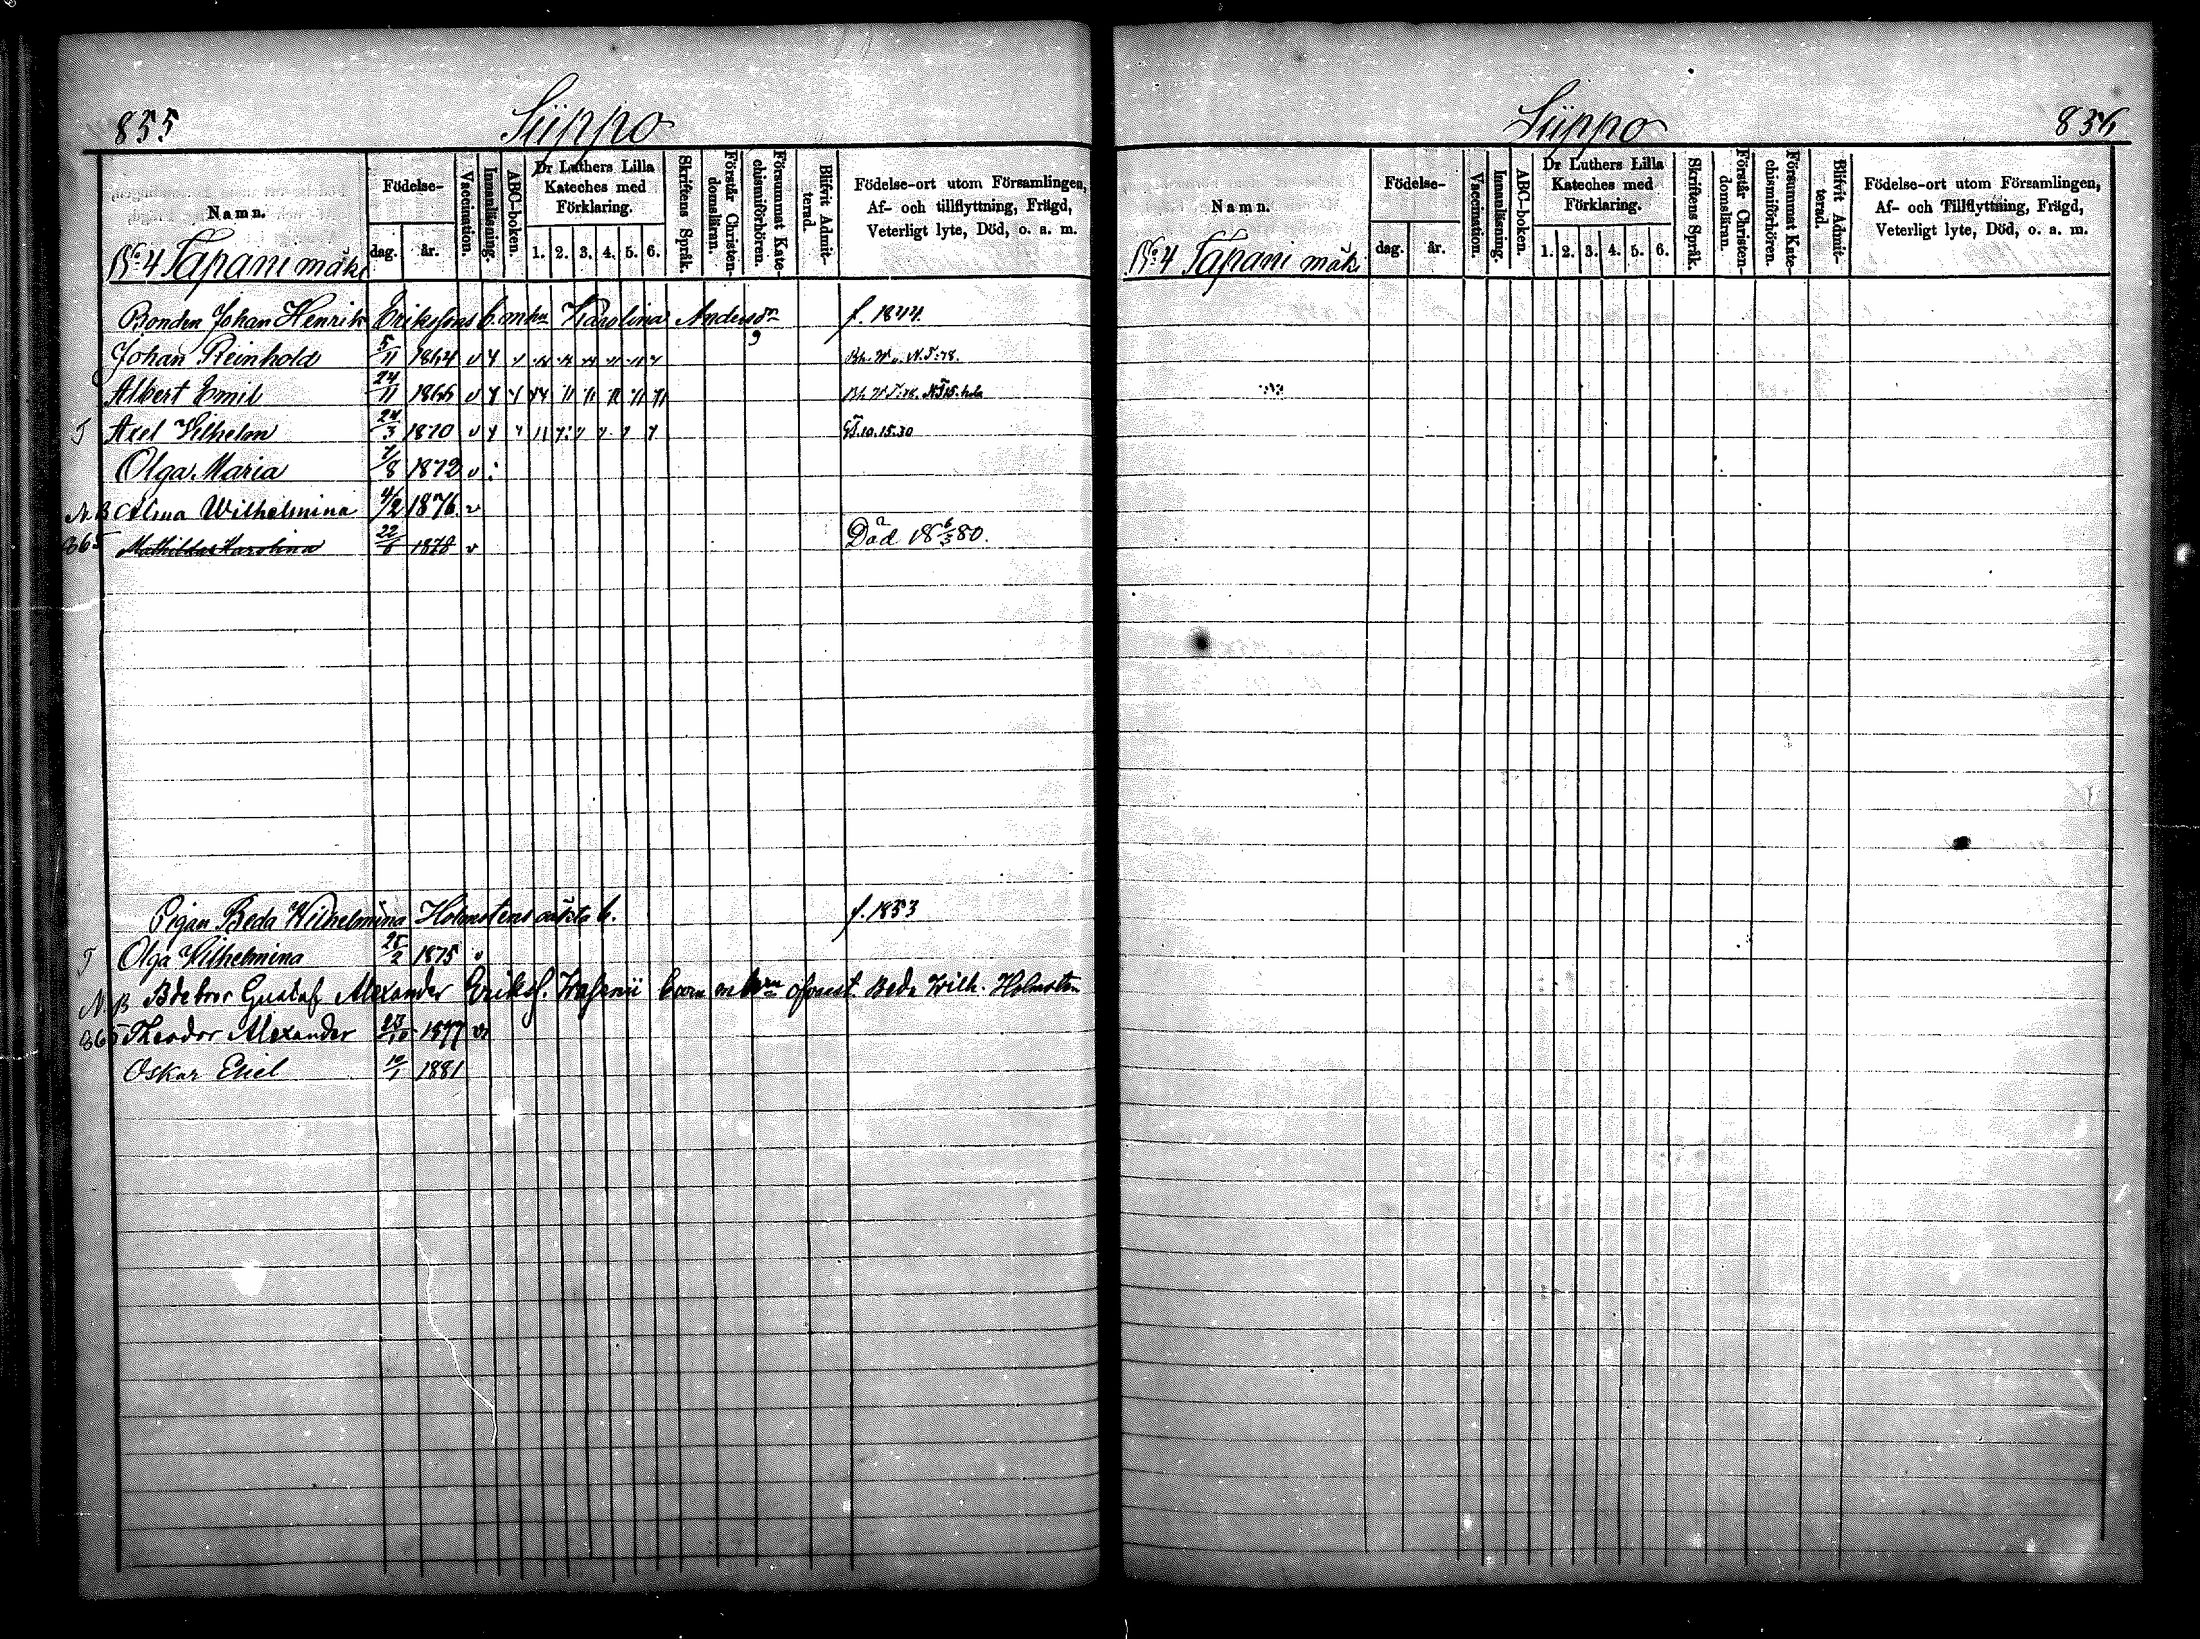 855
Siippo
Namn.
Födelse-
dag.
år.
Vaccination.
Innanläsning.
ABC-boken.
Dr Luthers Lilla
Kateches med
Förklaring.
1. 2. 3. 4. 5. 6.
Skriftens Språk.
Förstår Christen-
domsläran.
Försummat Kate-
chismiförhören.
Blifvit Admit-
terad.
Födelse-ort utom Församlingen,
Af- och tillflyttning, Frägd,
Veterligt lyte, Död, o. a. m.
No 4 Tapani mäki
Bonden Johan Henrik Erikssons b. m hu Karolina Andersdr f. 1844
Johan Reinhold 5/11 1864 v
Albert Emil 24/11 1866 v
T Axel Vilhelm 24/3 1870 v
Olga Maria 7/8 1872 v
N.B Alma Wilhelmina 4/2 1876 v
865 Mathilda Karolina 22/6 1878 v Död 18 6/3 80.
Pigan Beda Wilhelmina Holmstens oäkta b. f. 1853
T Olga Vilhelmina 25/2 1875 v
N.B Gustaf Alexander Erikss. Beda Wilh. Holmsten
865 Theodor Alexander 23/10 1877 v
Oskar Eliel 10/1 1881
Siippo
856
Namn.
Födelse-
dag.
år.
Vaccination.
Innanläsning.
ABC-boken.
Dr Luthers Lilla
Kateches med
Förklaring.
1. 2. 3. 4. 5. 6.
Skriftens Språk.
Förstår Christen-
domsläran.
Försummat Kate-
chismiförhören.
Blifvit Admit-
terad.
Födelse-ort utom Församlingen,
Af- och Tillflyttning, Frägd,
Veterligt lyte, Död, o. a. m.
No 4 Tapani mäki